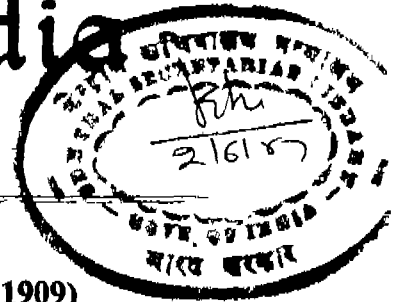 dia
केन्द्रीय सचिवालय
CENTRAL SECRETARIAT LIBRARY
2/6/87
GOVT. OF INDIA
भारत सरकार
1909)